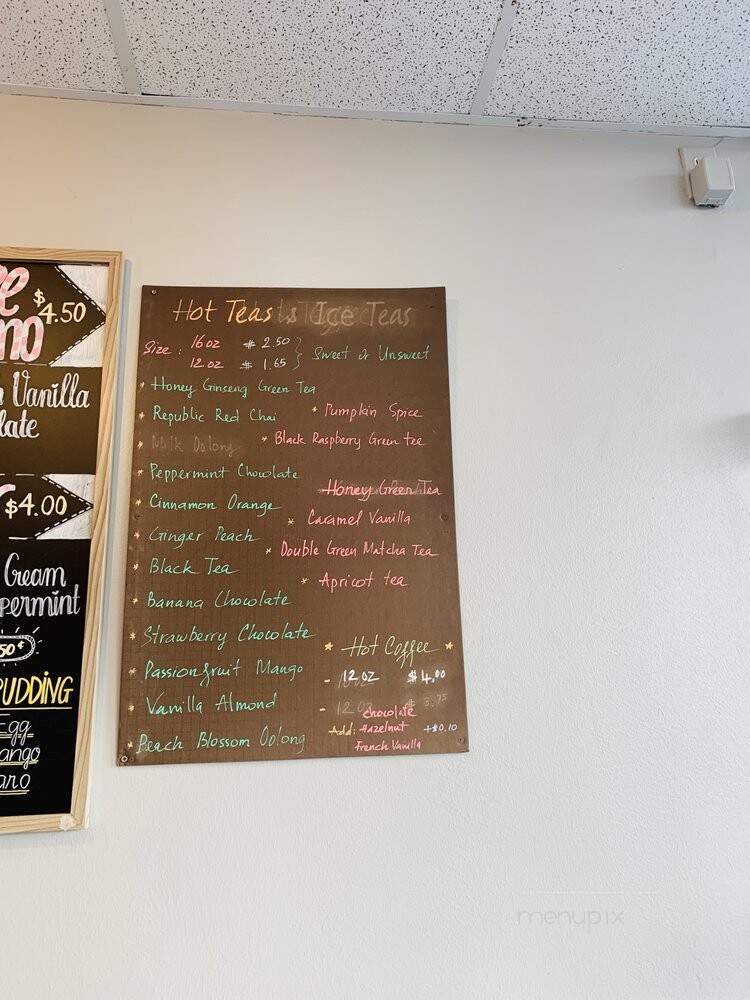 $4.50
Vanilla
$4.00
Cream
50¢
PUDDING
Egg
Hot Teas & Ice Teas
Size: 16oz $2.50
12oz $1.65
Sweet or Unsweet
* Honey Ginseng Green Tea
* Republic Red Chai
* Milk Oolong
* Peppermint Chocolate
* Cinnamon Orange
* Ginger Peach
* Black Tea
* Banana Chocolate
* Strawberry Chocolate
* Passionfruit Mango
* Vanilla Almond
* Peach Blossom Oolong
* Pumpkin Spice
* Black Raspberry Green tee
Honey Green Tea
* Caramel Vanilla
* Double Green Matcha Tea
* Apricot tea
* Hot Coffee *
- 12oz $4.00
- 12oz $3.75
Add: chocolate
Hazelnut +$0.10
French Vanilla
menupix